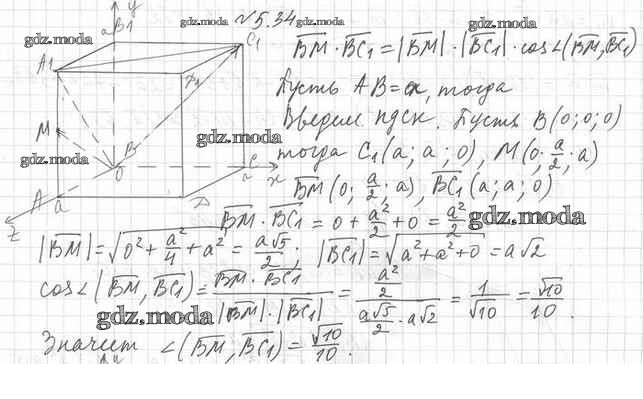 №5.34
gdz.moda
gdz.moda
gdz.moda
gdz.moda
y
a B1
C1
A1
D1
M
B
O
C
a
x
A
a
D
z
gdz.moda
gdz.moda
BM · BC1 = |BM| · |BC1| · cos∠(BM, BC1)
Пусть AB = a, тогда
Введем ПДСК. Пусть B(0; 0; 0)
тогда C1(a; a; 0), M(0; a/2; a)
BM(0; a/2; a), BC1(a; a; 0)
BM · BC1 = 0 + a²/2 + 0 = a²/2
gdz.moda
|BM| = √(0² + a²/4 + a²) = a√5/2; |BC1| = √(a² + a² + 0) = a√2
cos∠(BM, BC1) = BM · BC1 / |BM| · |BC1| = a²/2 / a√5/2 · a√2 = 1/√10 = √10/10.
gdz.moda
Значит ∠(BM, BC1) = √10/10.